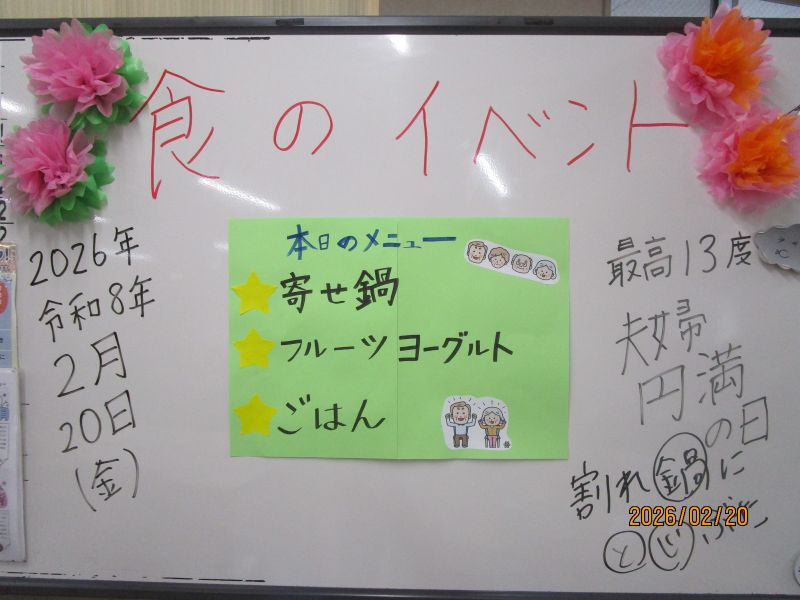 食のイベント
2026年
令和8年
2月
20日
(金)
本日のメニュー
寄せ鍋
フルーツヨーグルト
ごはん
最高13度
夫婦
円満
の日
割れ鍋に
とじぶた
2026/02/20